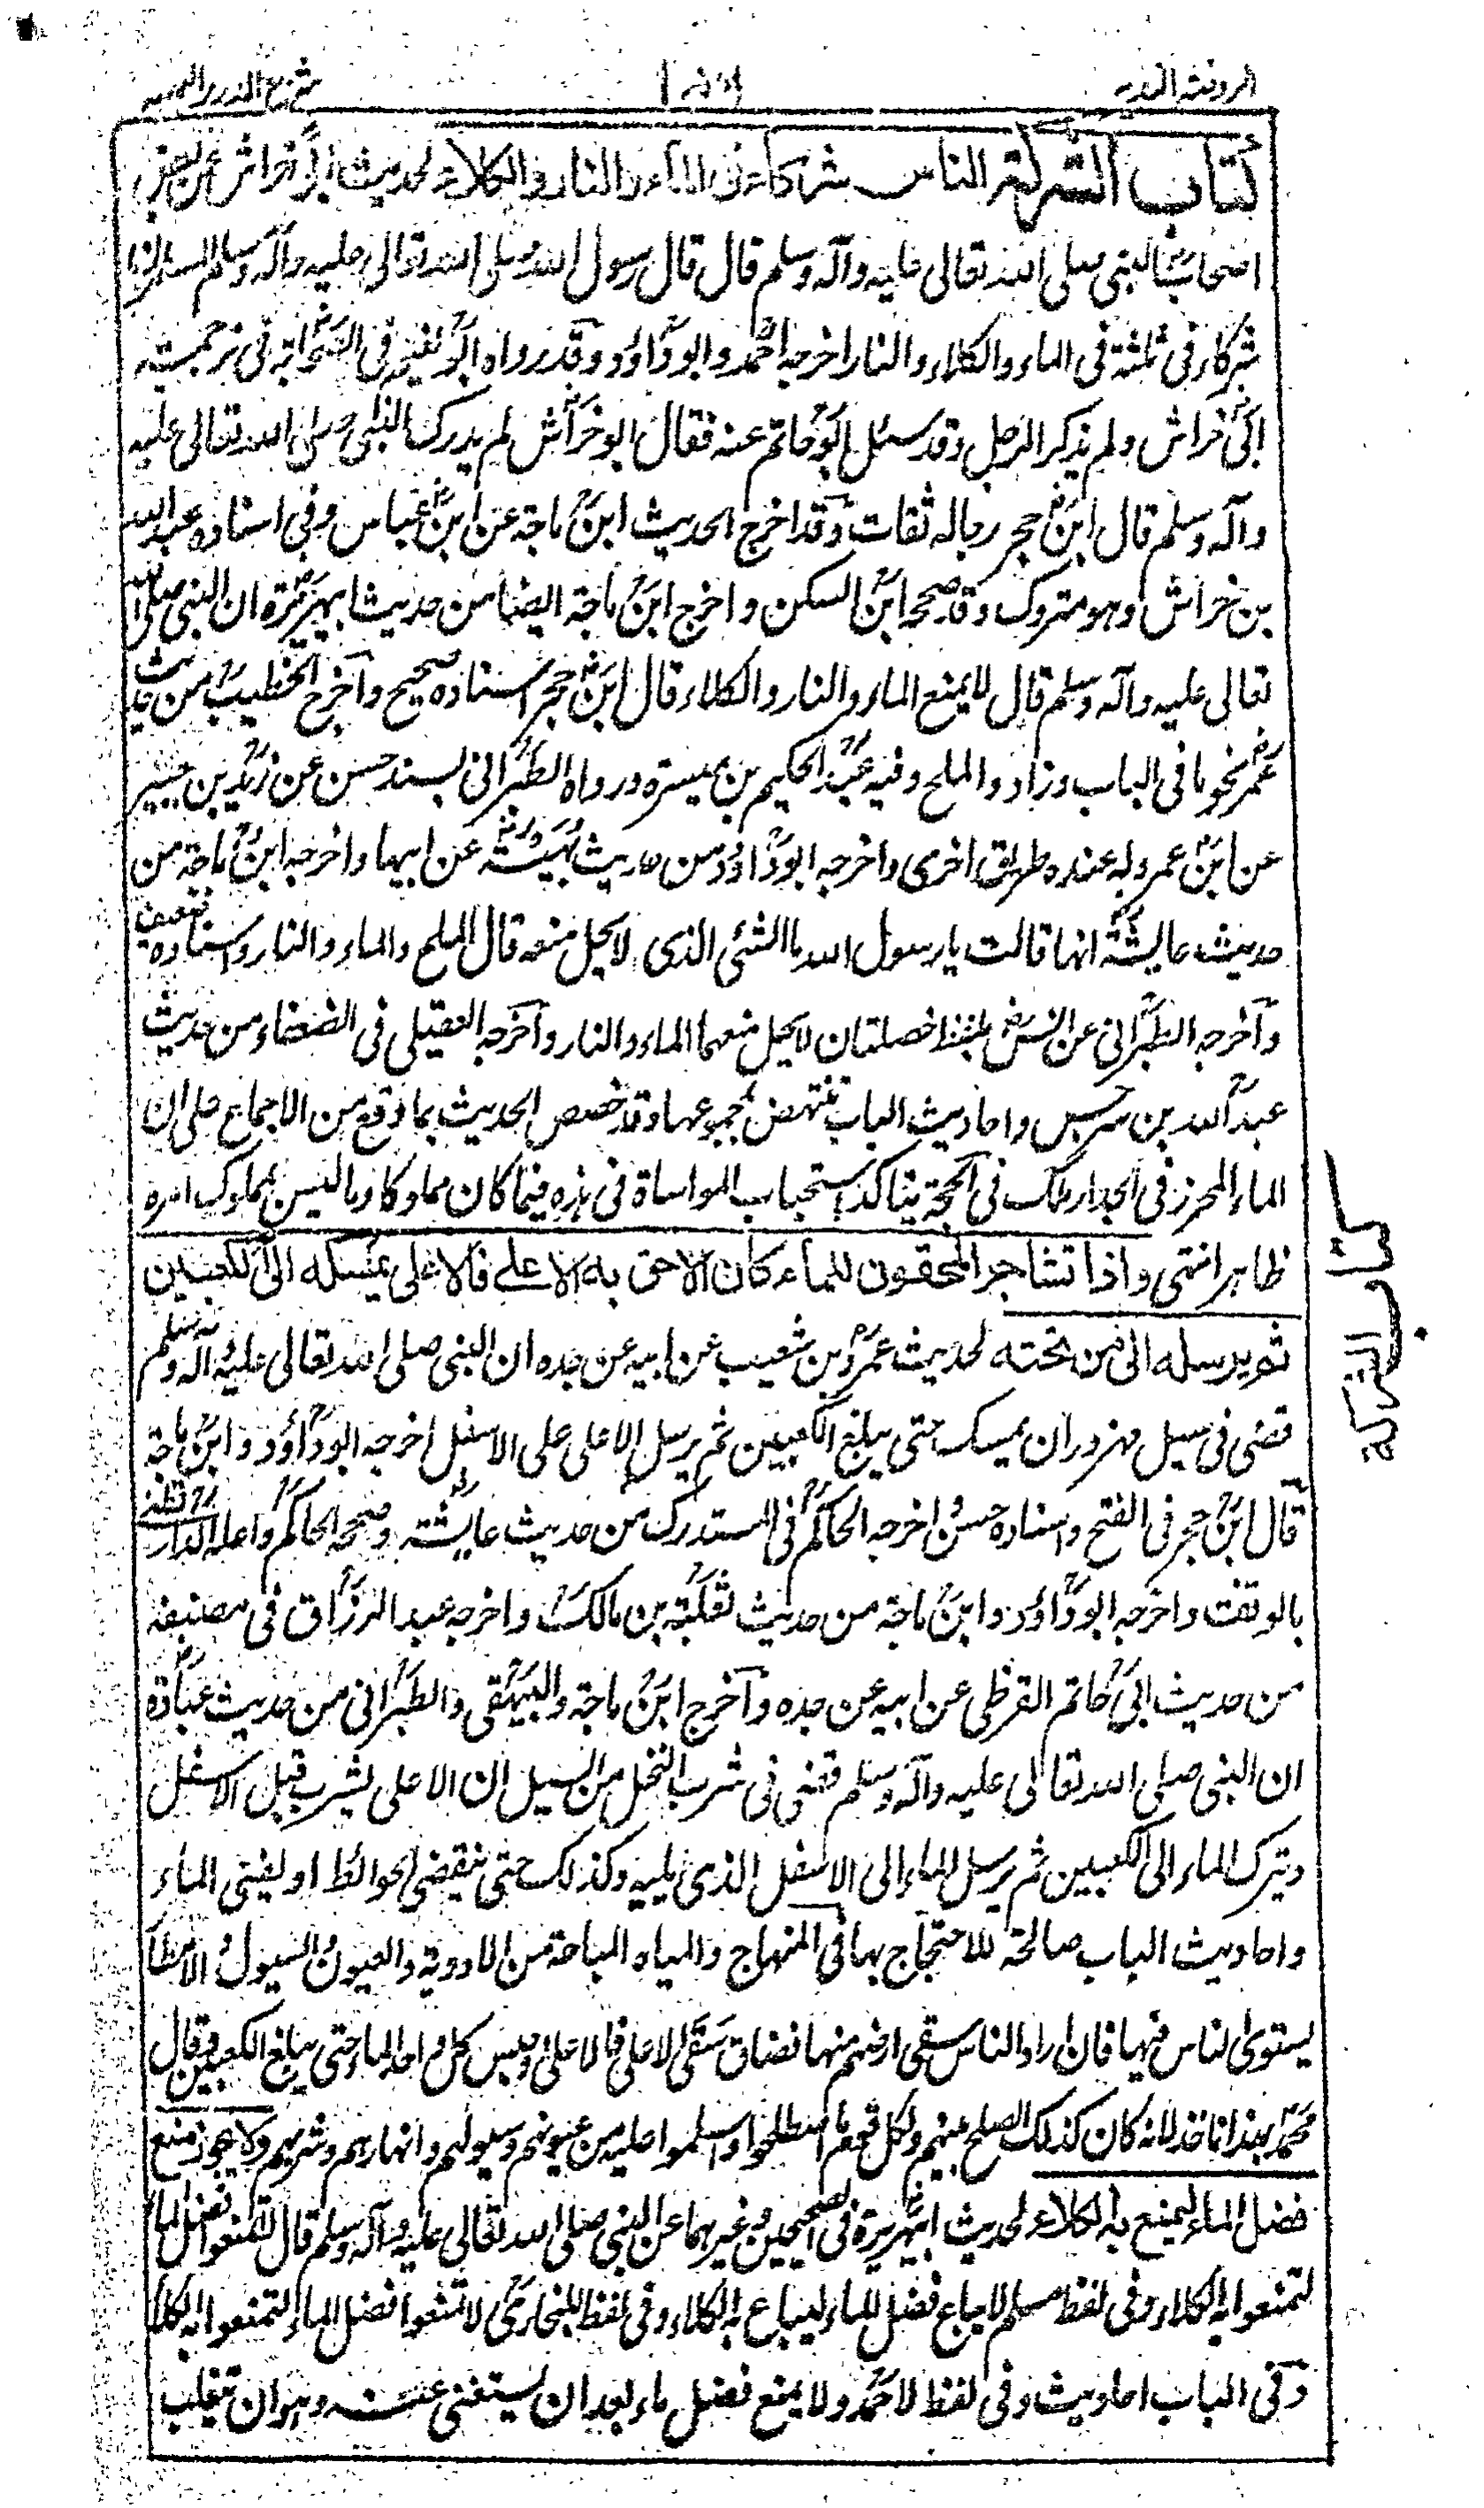 الروضة الندية
شرح الدرر البهية
كتاب الشركة الناس شركاء في الماء والنار والكلاء لحديث ابي خراش عن بعض
اصحاب النبي صلى الله تعالى عليه وآله وسلم قال قال رسول الله صلى الله تعالى عليه وآله وسلم المسلمون
شركاء في ثلثة في الماء والكلاء والنار اخرجه احمد وابو داود وقد رواه ابو نعيم في الصحابة في ترجمة
ابي خراش ولم يذكر الرجل وقد سئل ابو حاتم عنه فقال ابو خراش لم يدرك النبي صلى الله تعالى عليه
وآله وسلم قال ابن حجر رجاله ثقات وقد اخرج الحديث ابن ماجة عن ابن عباس وفي اسناده عبد الله
بن خراش وهو متروك وقد صححه ابن السكن واخرج ابن ماجة ايضا من حديث ابي هريرة ان النبي صلى الله
تعالى عليه وآله وسلم قال لا يمنع الماء والنار والكلاء قال ابن حجر اسناده صحيح وآخرج الخطيب من حديث
عمر نحو ما في الباب وزاد والملح وفيه عبد الحكيم بن ميسرة ورواه الطبراني بسند حسن عن زيد بن جبير
عن ابن عمر وله عنده طريق اخرى واخرجه ابو داود من حديث بهيسة عن ابيها واخرجه ابن ماجة من
حديث عايشة انها قالت يا رسول الله ما الشئ الذي لا يحل منعه قال الملح والماء والنار واسناده ضعيف
وآخرجه الطبراني عن انس بلفظ خصلتان لا يحل منعهما الماء والنار وآخرجه العقيلي في الضعفاء من حديث
عبد الله بن سرجس واحاديث الباب تنتهض بمجموعها وقد خصص الحديث بما وقع من الاجماع على ان
الماء المحرز في الجرار ملك في الحجة يتاكد استحباب المواساة في هذه فيما كان مملوكا وما ليس بمملوك امره
ظاهر انتهى واذا تشاجر المحقون للماء كان الاحق به الاعلى فالاعلى يمسكه الى الكعبين
ثم يرسله الى من تحته لحديث عمرو بن شعيب عن ابيه عن جده ان النبي صلى الله تعالى عليه وآله وسلم
قضى في سيل مهزور ان يمسك حتى يبلغ الكعبين ثم يرسل الاعلى على الاسفل اخرجه ابو داود وابن ماجة
قال ابن حجر في الفتح واسناده حسن اخرجه الحاكم في المستدرك من حديث عايشة وصححه الحاكم واعله الدارقطني
بالوقف واخرجه ابو داود وابن ماجة من حديث ثعلبة بن مالك واخرجه عبد الرزاق في مصنفه
من حديث ابي حاتم القرظي عن ابيه عن جده وآخرج ابن ماجة والبيهقي والطبراني من حديث عبادة
ان النبي صلى الله تعالى عليه وآله وسلم قضى في شرب النخل من السيل ان الاعلى يشرب قبل الاسفل
ويترك الماء الى الكعبين ثم يرسل الماء الى الاسفل الذي يليه وكذلك حتى ينقضي الحوائط او يفنى الماء
واحاديث الباب صالحة للاحتجاج بها في المنهاج والمياه المباحة من الاودية والعيون والسيول والامطار
يستوى الناس فيها فان اراد الناس سقى ارضهم منها فضاق سقى الاعلى فالاعلى وحبس كل واحد الماء حتى يبلغ الكعبين وقال
محمد بهذا ناخذ لانه كان كذلك الصلح بينهم ولكل قوم ما اصطلحوا واسلموا عليه من عيونهم وسيولهم وانهارهم وشربهم ولا يجوز منع
فضل الماء ليمنع به الكلاء لحديث ابي هريرة في الصحيحين وغيرهما عن النبي صلى الله تعالى عليه وآله وسلم قال لا تمنعوا فضل الماء
لتمنعوا به الكلاء وفي لفظ مسلم لا يباع فضل الماء ليباع به الكلاء وفي لفظ للبخاري لا تمنعوا فضل الماء لتمنعوا به الكلاء
وفي الباب احاديث وفي لفظ لاحمد ولا يمنع فضل ماء بعد ان يستغنى عنه وهو ان يتغلب
كتاب الشركة